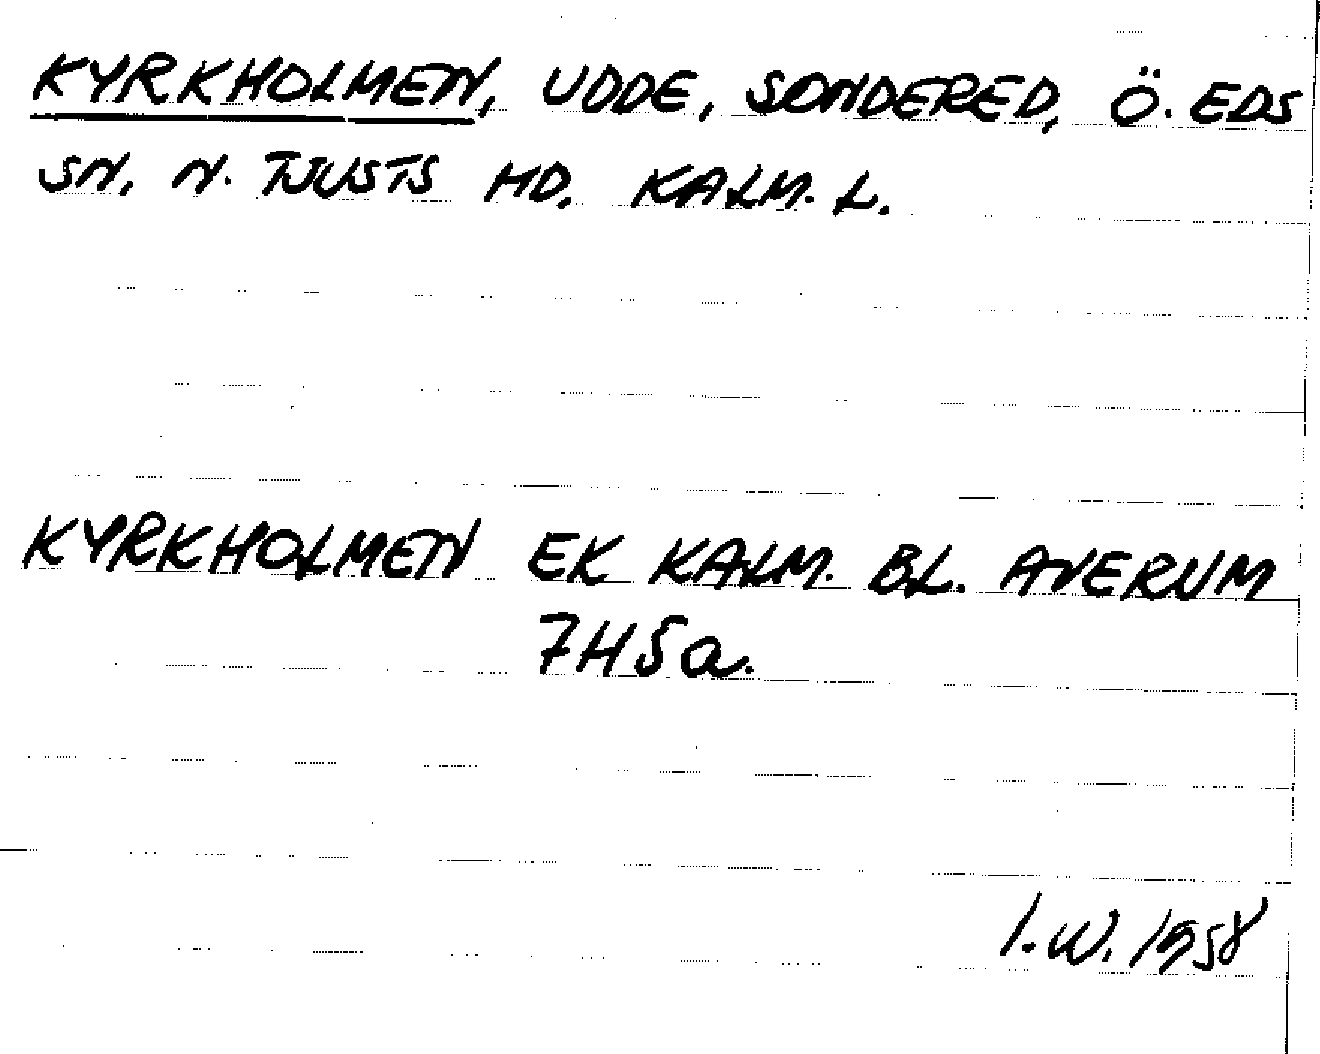 KYRKHOLMEN, UDDE, SONDERED, Ö. EDS
SN. N. TJUSTS HD. KALM. L.
KYRKHOLMEN EK KALM. BL. AVERUM
7H5a.
I.W. 1958